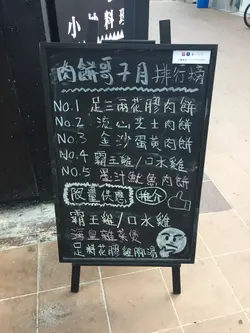 小炒料理
肉餅哥7月排行榜
No.1 足三兩花膠肉餅
No.2 流心芝士肉餅
No.3 金沙蛋黃肉餅
No.4 霸王雞/口水雞
No.5 墨汁魷魚肉餅
限量供應 推介
霸王雞/口水雞
海皇雜菜煲
足料花膠雞腳湯